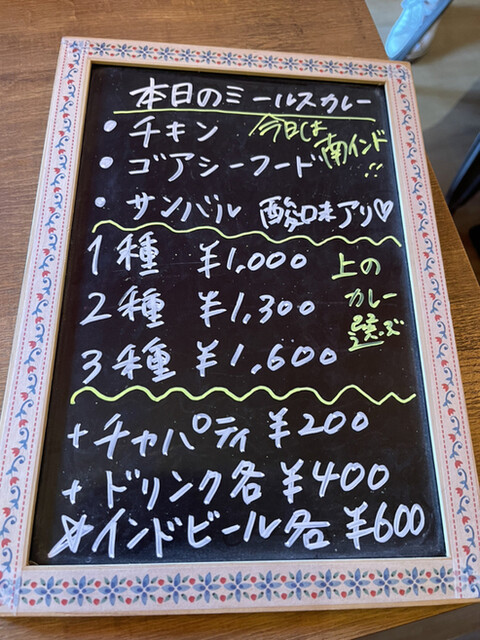 本日のミールスカレー
・チキン 今日は南インド!!
・ゴアシーフード
・サンバル 酸味アリ♡
1種 ¥1,000
2種 ¥1,300
3種 ¥1,600
上の
カレー
選ぶ
+チャパティ ¥200
+ドリンク各 ¥400
☆インドビール各 ¥600